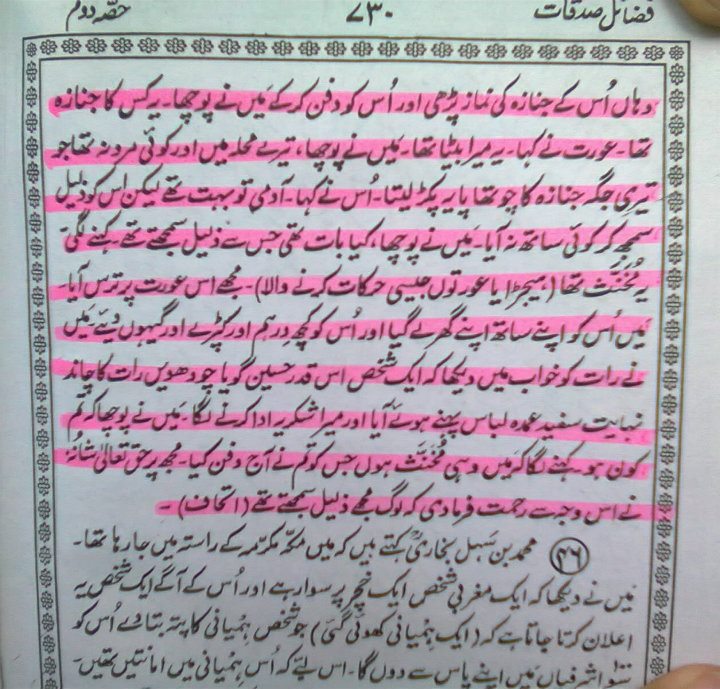 فضائل صدقات ۷۳۰ حصّہ دوم
وہاں اُس کے جنازہ کی نماز پڑھی اور اُس کو دفن کرکے مَیں نے پوچھا۔ یہ کس کا جنازہ
تھا۔ عورت نے کہا۔ یہ میرا بیٹا تھا۔ مَیں نے پوچھا، تیرے محلہ میں اور کوئی مرد نہ تھا جو
تیری جگہ جنازہ کا چوتھا پایہ پکڑ لیتا۔ اُس نے کہا۔ آدمی تو بہت تھے لیکن اس کو ذلیل
سمجھ کر کوئی ساتھ نہ آیا۔ مَیں نے پوچھا، کیا بات تھی جس سے ذلیل سمجھتے تھے۔ کہنے لگی
یہ مُخَنَّث تھا (ہیجڑا یا عورتوں جیسی حرکات کرنے والا)۔ مجھے اس عورت پر ترس آیا۔
مَیں اُس کو اپنے ساتھ اپنے گھر لے گیا اور اُس کو کچھ دِرہم اور کپڑے اور گیہوں دیئے۔ مَیں
نے رات کو خواب میں دیکھا کہ ایک شخص اس قدر حسین گویا چودھویں رات کا چاند
نہایت سفید عمدہ لباس پہنے ہوئے آیا اور میرا شکریہ ادا کرنے لگا۔ مَیں نے پوچھا کہ تُم
کون ہو۔ کہنے لگا کہ مَیں وہی مُخَنَّث ہوں جس کو تم نے آج دفن کیا۔ مجھ پر حق تعالیٰ شانُہٗ
نے اس وجہ سے رحمت فرما دی کہ لوگ مجھے ذلیل سمجھتے تھے (اتحاف)۔
(۴۶) محمد بن سَہل بخاریؒ کہتے ہیں کہ مَیں مکّہ مکرّمہ کے راستہ میں جا رہا تھا۔
مَیں نے دیکھا کہ ایک مغربی شخص ایک خچر پر سوار ہے اور اُس کے آگے ایک شخص یہ
اعلان کرتا جاتا ہے کہ (ایک ہِمیانی کھوئی گئی) جو شخص ہِمیانی کا پتہ بتا دے اُس کو
سَو اشرفیاں مَیں اپنے پاس سے دوں گا۔ اس لئے کہ اُس ہِمیانی میں امانتیں تھیں۔